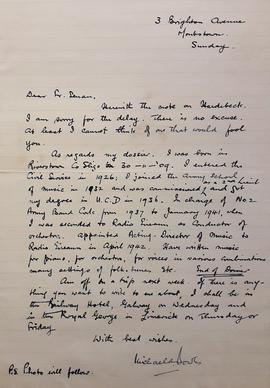 3 Brighton Avenue
Monkstown.
Sunday.
Dear Fr. Senan,
Herewith the note on Hardebeck.
I am sorry for the delay. There is no excuse.
At least I cannot think of one that would fool
you.
As regards my dossier. I was born in
Riverstown Co Sligo on 30-11-'09. I entered the
Civil Service in 1926; I joined the Army School
of music in 1932 and was commissioned and got
my degree in U.C.D in 1936. In charge of No 2
Army Band Cork from 1937 to January 1941, when
I was seconded to Radio Eireann as Conductor of
orchestra. Appointed Acting-Director of Music to
Radio Eireann in April 1942. Have written music
for piano, for orchestra, for voices in various combinations
many settings of folk-tunes Etc.
Am off on a trip next week. If there is any-
thing you want to wire to me about, I shall be in
the Railway Hotel, Galway on Wednesday and
in the Royal George in Limerick on Thursday or
Friday
With best wishes.
Michael Bowles
P.S. Photo will follow.